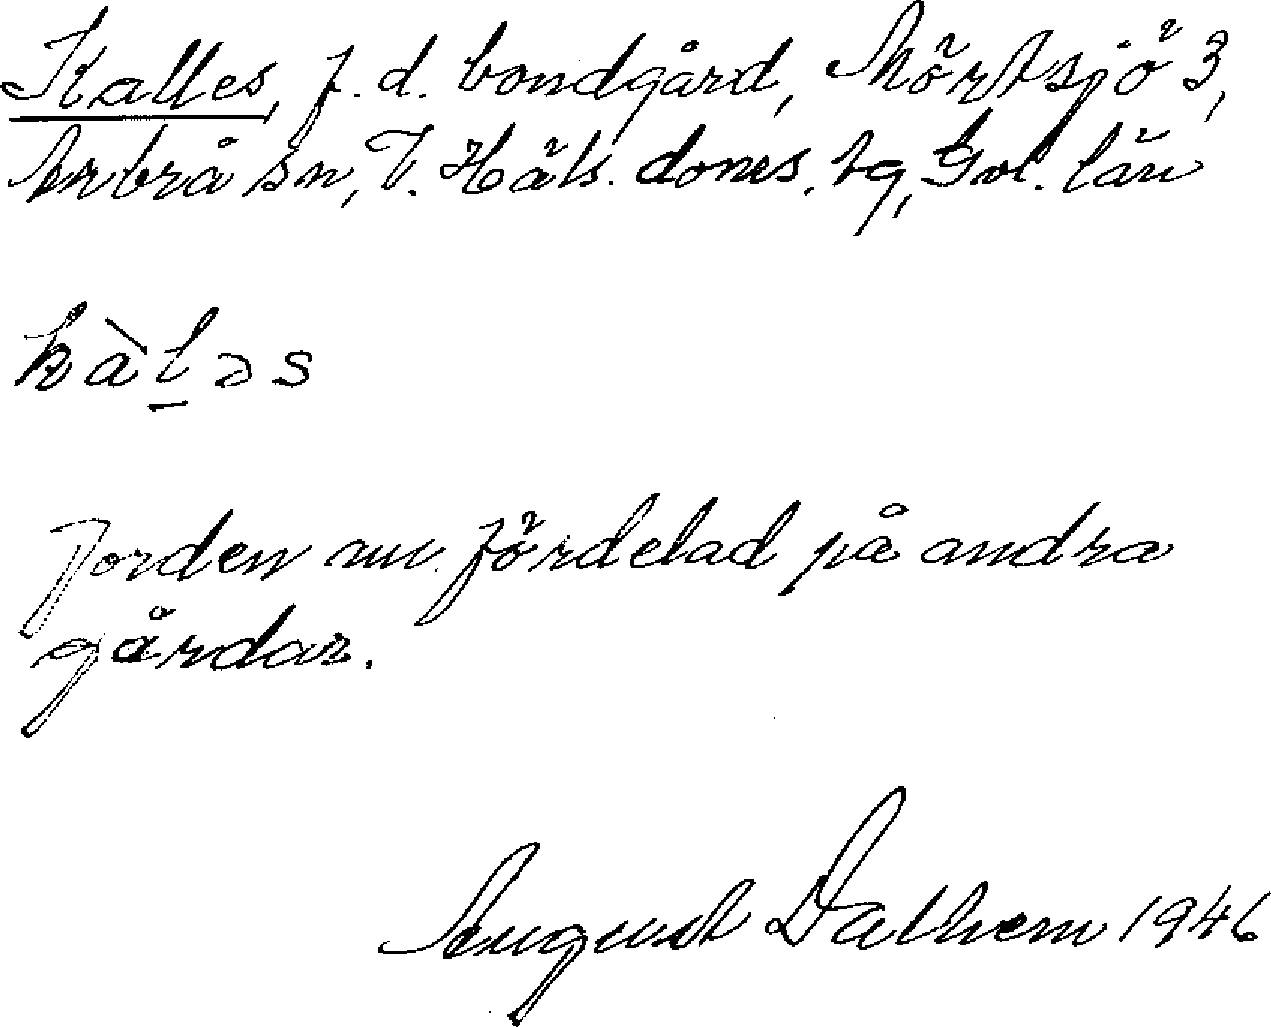 Kalles, f. d. bondgård, Mörtsjö 3,
Arbrå sn, V. Häls. doms. tg, Gvl. län
kàl̠əs
Jorden nu fördelad på andra
gårdar.
August Dalhem 1946